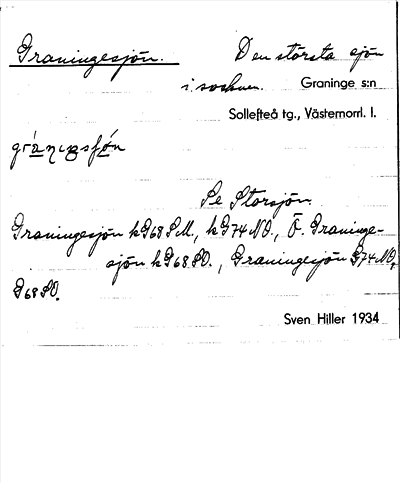 Graningesjön. Den största sjön
i socknen. Graninge s:n
Sollefteå tg., Västernorrl. l.
Se Storsjön.
Graningesjön k G68 SM., k G74 NO., Ö. Graninge-
sjön k G68 SO., Graningesjön G74 NO,
G68 SO.
Sven Hiller 1934